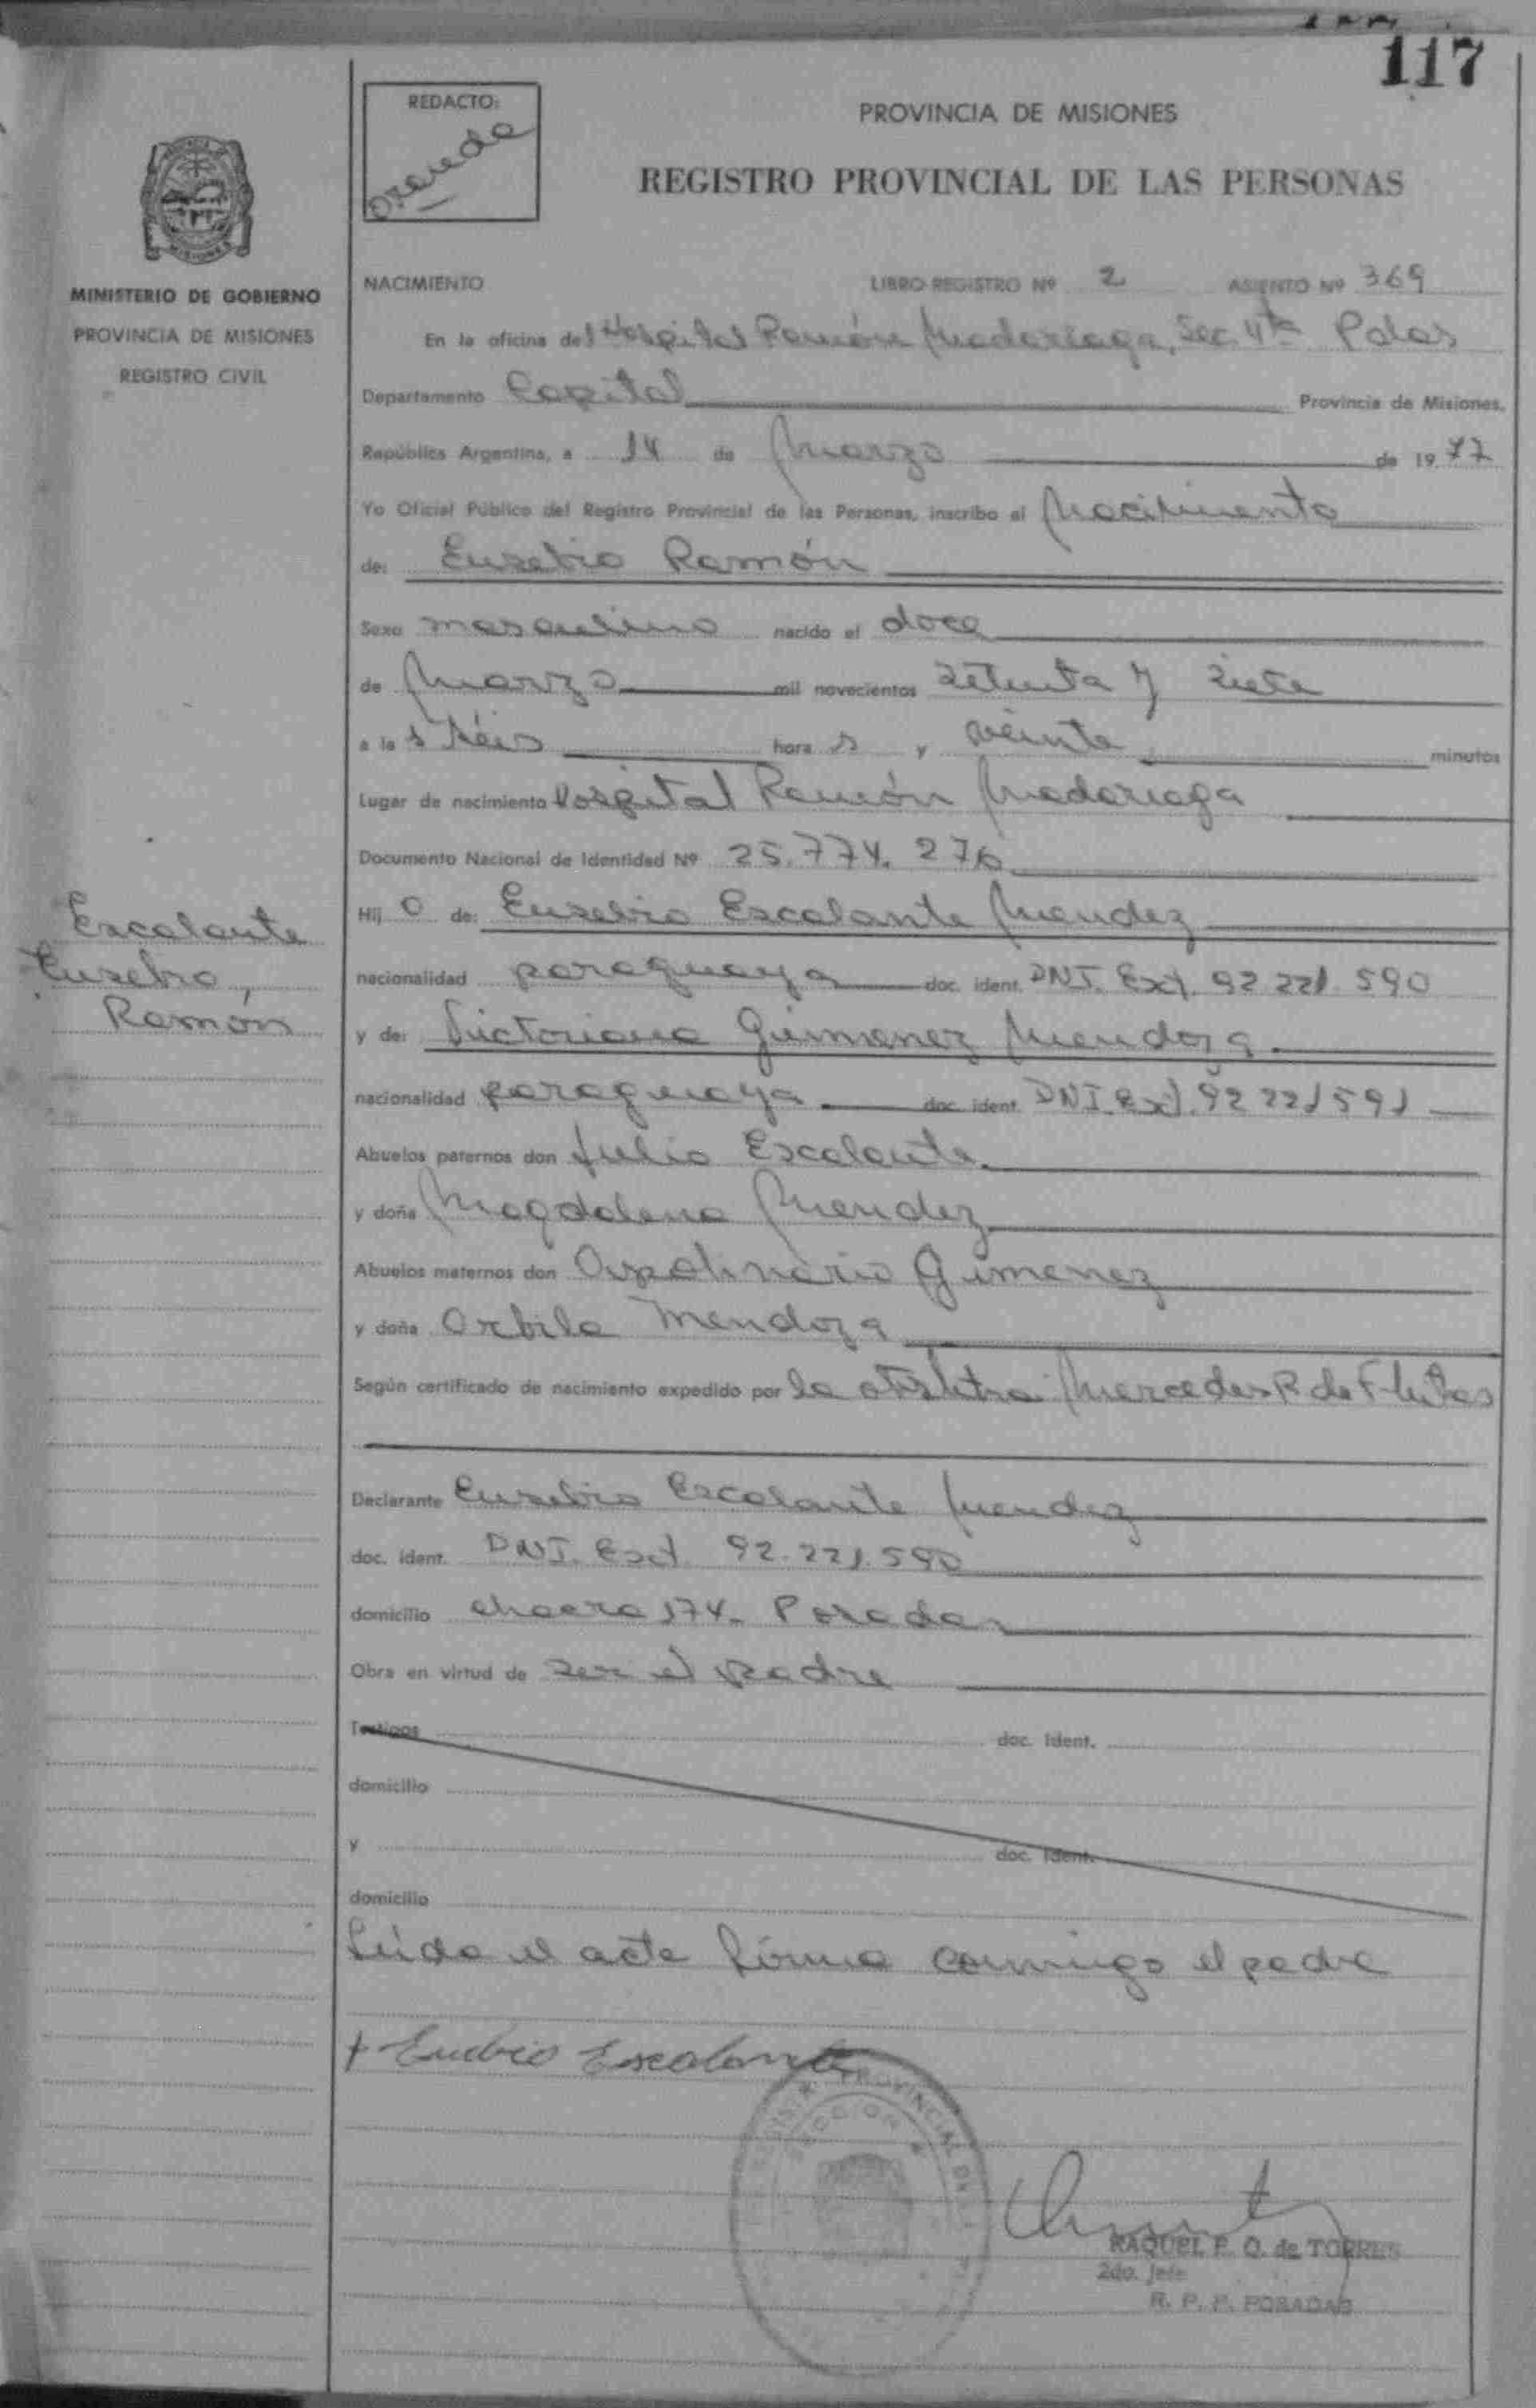 117
REDACTO:
PROVINCIA DE MISIONES
REGISTRO PROVINCIAL DE LAS PERSONAS
MINISTERIO DE GOBIERNO
PROVINCIA DE MISIONES
REGISTRO CIVIL
NACIMIENTO LIBRO REGISTRO Nº 2 ASIENTO Nº 369
En la oficina del Hospital Ramón Madariaga, Sec. 4ta Pdas
Departamento Capital Provincia de Misiones.
República Argentina, a 14 de Marzo de 1977
Yo Oficial Público del Registro Provincial de las Personas, inscribo el Nacimiento
de: Eusebio Ramón
Sexo masculino nacido el doce
de Marzo mil novecientos setenta y siete
a las séis horas y veinte minutos
Lugar de nacimiento Hospital Ramón Madariaga
Documento Nacional de Identidad Nº 25.774.276
Hijo de: Eusebio Escalante Mendez
nacionalidad paraguaya doc. ident. DNI. Ext. 92 221.590
y de: Victoriana Gimenez Mendoza
nacionalidad paraguaya doc. ident. DNI. Ext. 92 221591
Abuelos paternos don Julio Escalante
y doña Magdalena Mendez
Abuelos maternos don Apolinario Gimenez
y doña Orbila Mendoza
Según certificado de nacimiento expedido por la obstetra Mercedes R. de Fleitas
Declarante Eusebio Escalante Mendez
doc. ident. DNI. Ext. 92.221.590
domicilio chacra 174- Posadas
Obra en virtud de ser el padre
Testigos doc. ident.
domicilio
y doc. ident.
domicilio
Leída el acta fírma conmigo el padre
Escalante
Eusebio,
Ramón
+ Eusebio Escalante
RAQUEL F. O. de TORRES
2do. Jefe
R. P. P. POSADAS